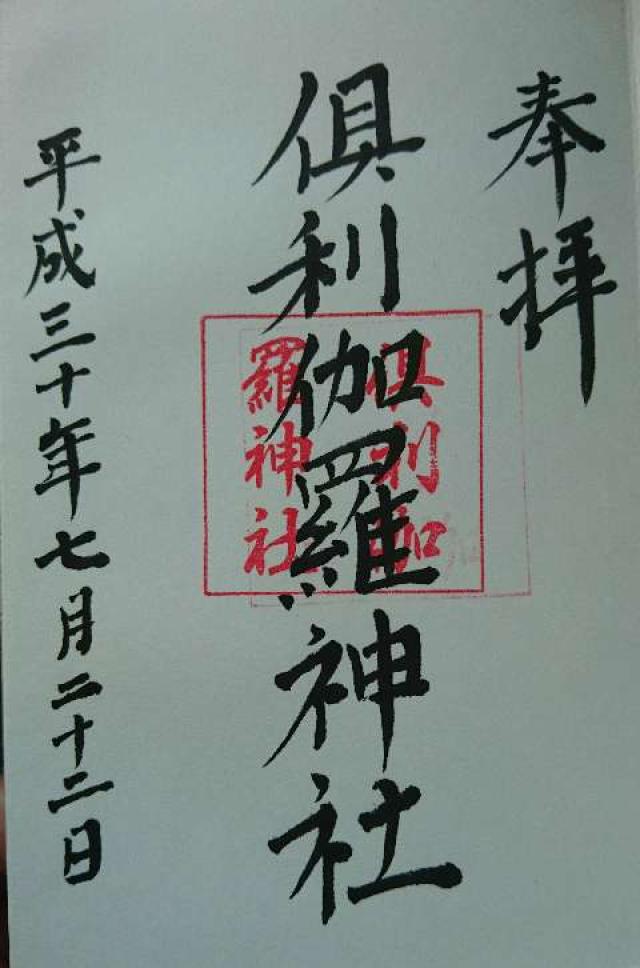 奉拝
倶利伽羅神社
倶利伽
羅神社
平成三十年七月二十二日